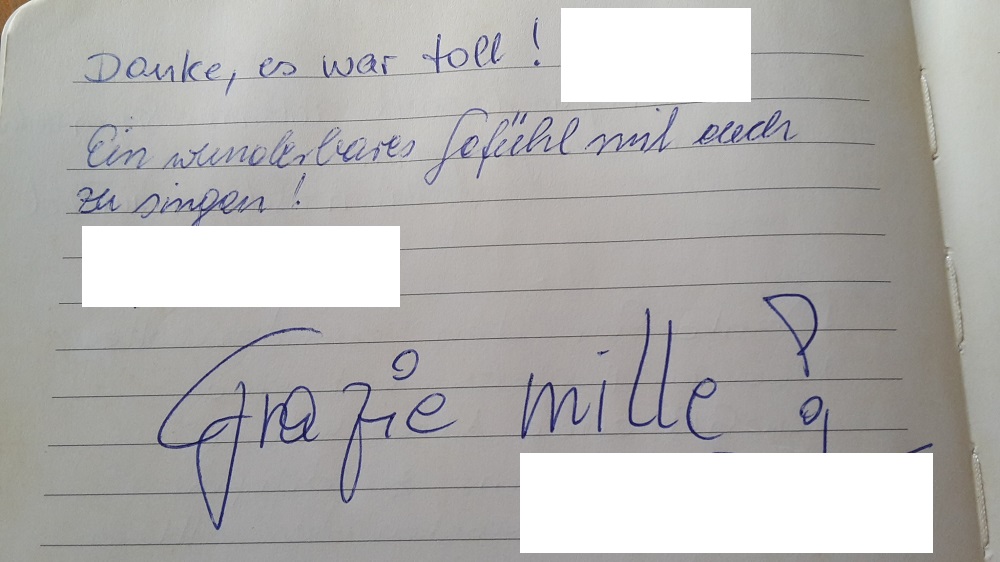 Danke, es war toll!
Ein wunderbares Gefühl mit euch
zu singen!
Grazie mille!